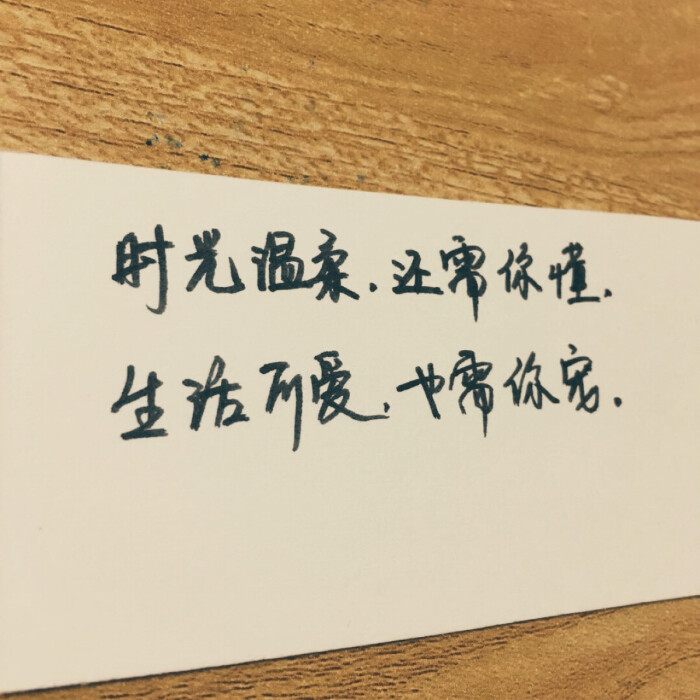 时光温柔，还需你懂.
生活所爱，也需你宠.